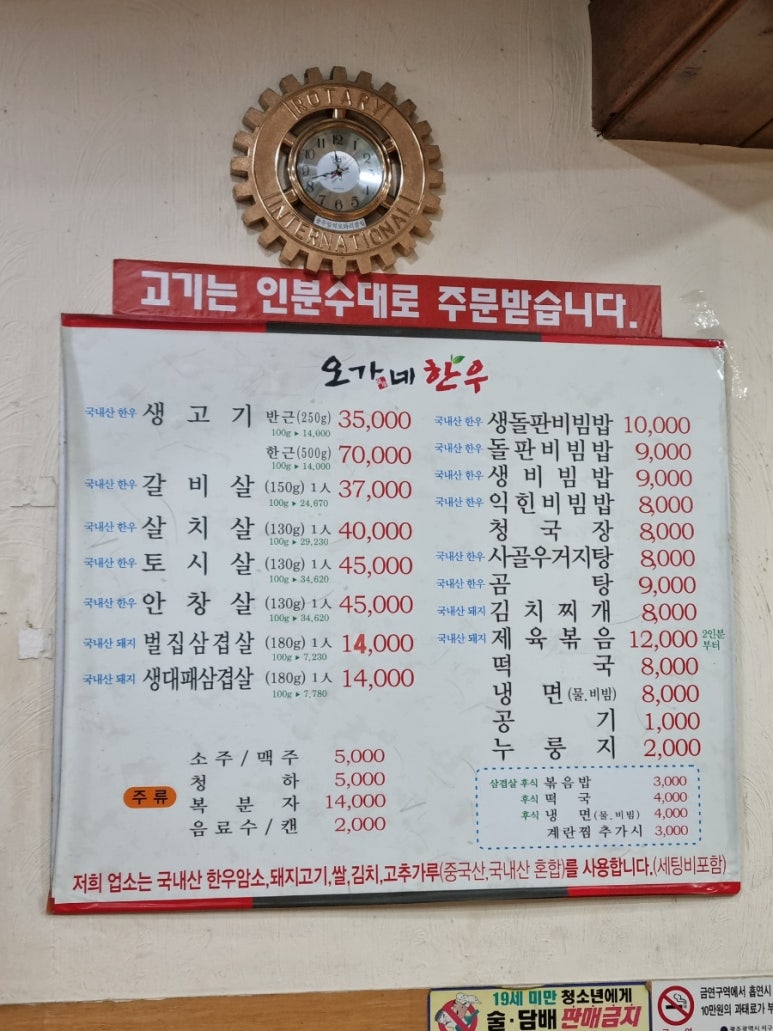 ROTARY
INTERNATIONAL
12
1
2
5
6
7
8
9
10
11
고기는 인분수대로 주문받습니다.
오가네한우
국내산 한우 생고기 반근(250g) 35,000
100g ▶ 14,000
한근(500g) 70,000
100g ▶ 14,000
국내산 한우 갈비살 (150g) 1人 37,000
100g ▶ 24,670
국내산 한우 살치살 (130g) 1人 40,000
100g ▶ 29,230
국내산 한우 토시살 (130g) 1人 45,000
100g ▶ 34,620
국내산 한우 안창살 (130g) 1人 45,000
100g ▶ 34,620
국내산 돼지 벌집삼겹살 (180g) 1人 14,000
100g ▶ 7,230
국내산 돼지 생대패삼겹살 (180g) 1人 14,000
100g ▶ 7,780
주류
소주/맥주 5,000
청하 5,000
복분자 14,000
음료수/캔 2,000
국내산 한우 생돌판비빔밥 10,000
국내산 한우 돌판비빔밥 9,000
국내산 한우 생비빔밥 9,000
국내산 한우 익힌비빔밥 8,000
청국장 8,000
국내산 한우 사골우거지탕 8,000
국내산 한우 곰탕 9,000
국내산 돼지 김치찌개 8,000
국내산 돼지 제육볶음 12,000 2인분부터
떡국 8,000
냉면(물.비빔) 8,000
공기 1,000
누룽지 2,000
삼겹살 후식 볶음밥 3,000
후식 떡국 4,000
후식 냉면(물.비빔) 4,000
계란찜 추가시 3,000
저희 업소는 국내산 한우암소,돼지고기,쌀,김치,고추가루(중국산,국내산 혼합)를 사용합니다.(세팅비포함)
19세 미만 청소년에게
술·담배 판매금지
금연구역에서 흡연시
10만원의 과태료가 부